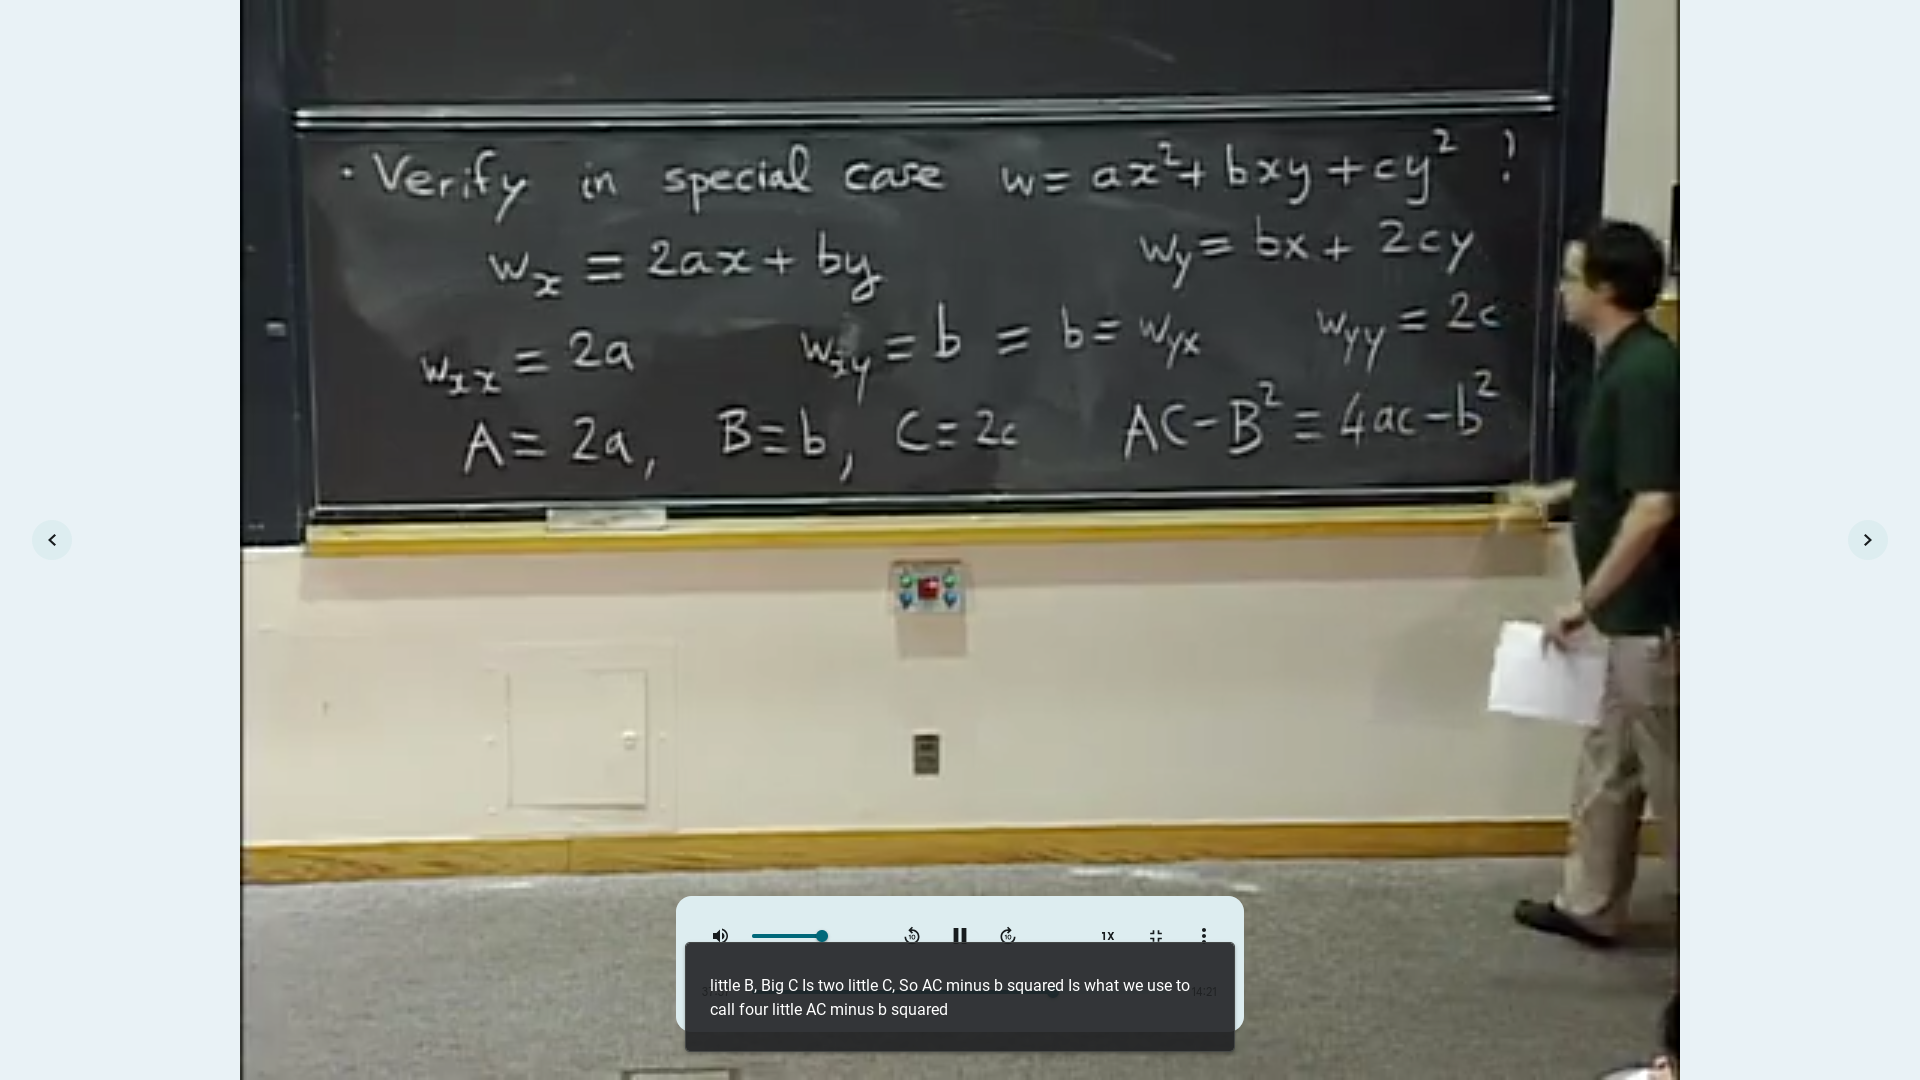 · Verify in special case w = ax² + bxy + cy² !
w_x = 2ax + by
w_y = bx + 2cy
w_xx = 2a
w_xy = b = b = w_yx
w_yy = 2c
A = 2a, B = b, C = 2c
AC - B² = 4ac - b²
10
10
1X
little B, Big C Is two little C, So AC minus b squared Is what we use to
call four little AC minus b squared